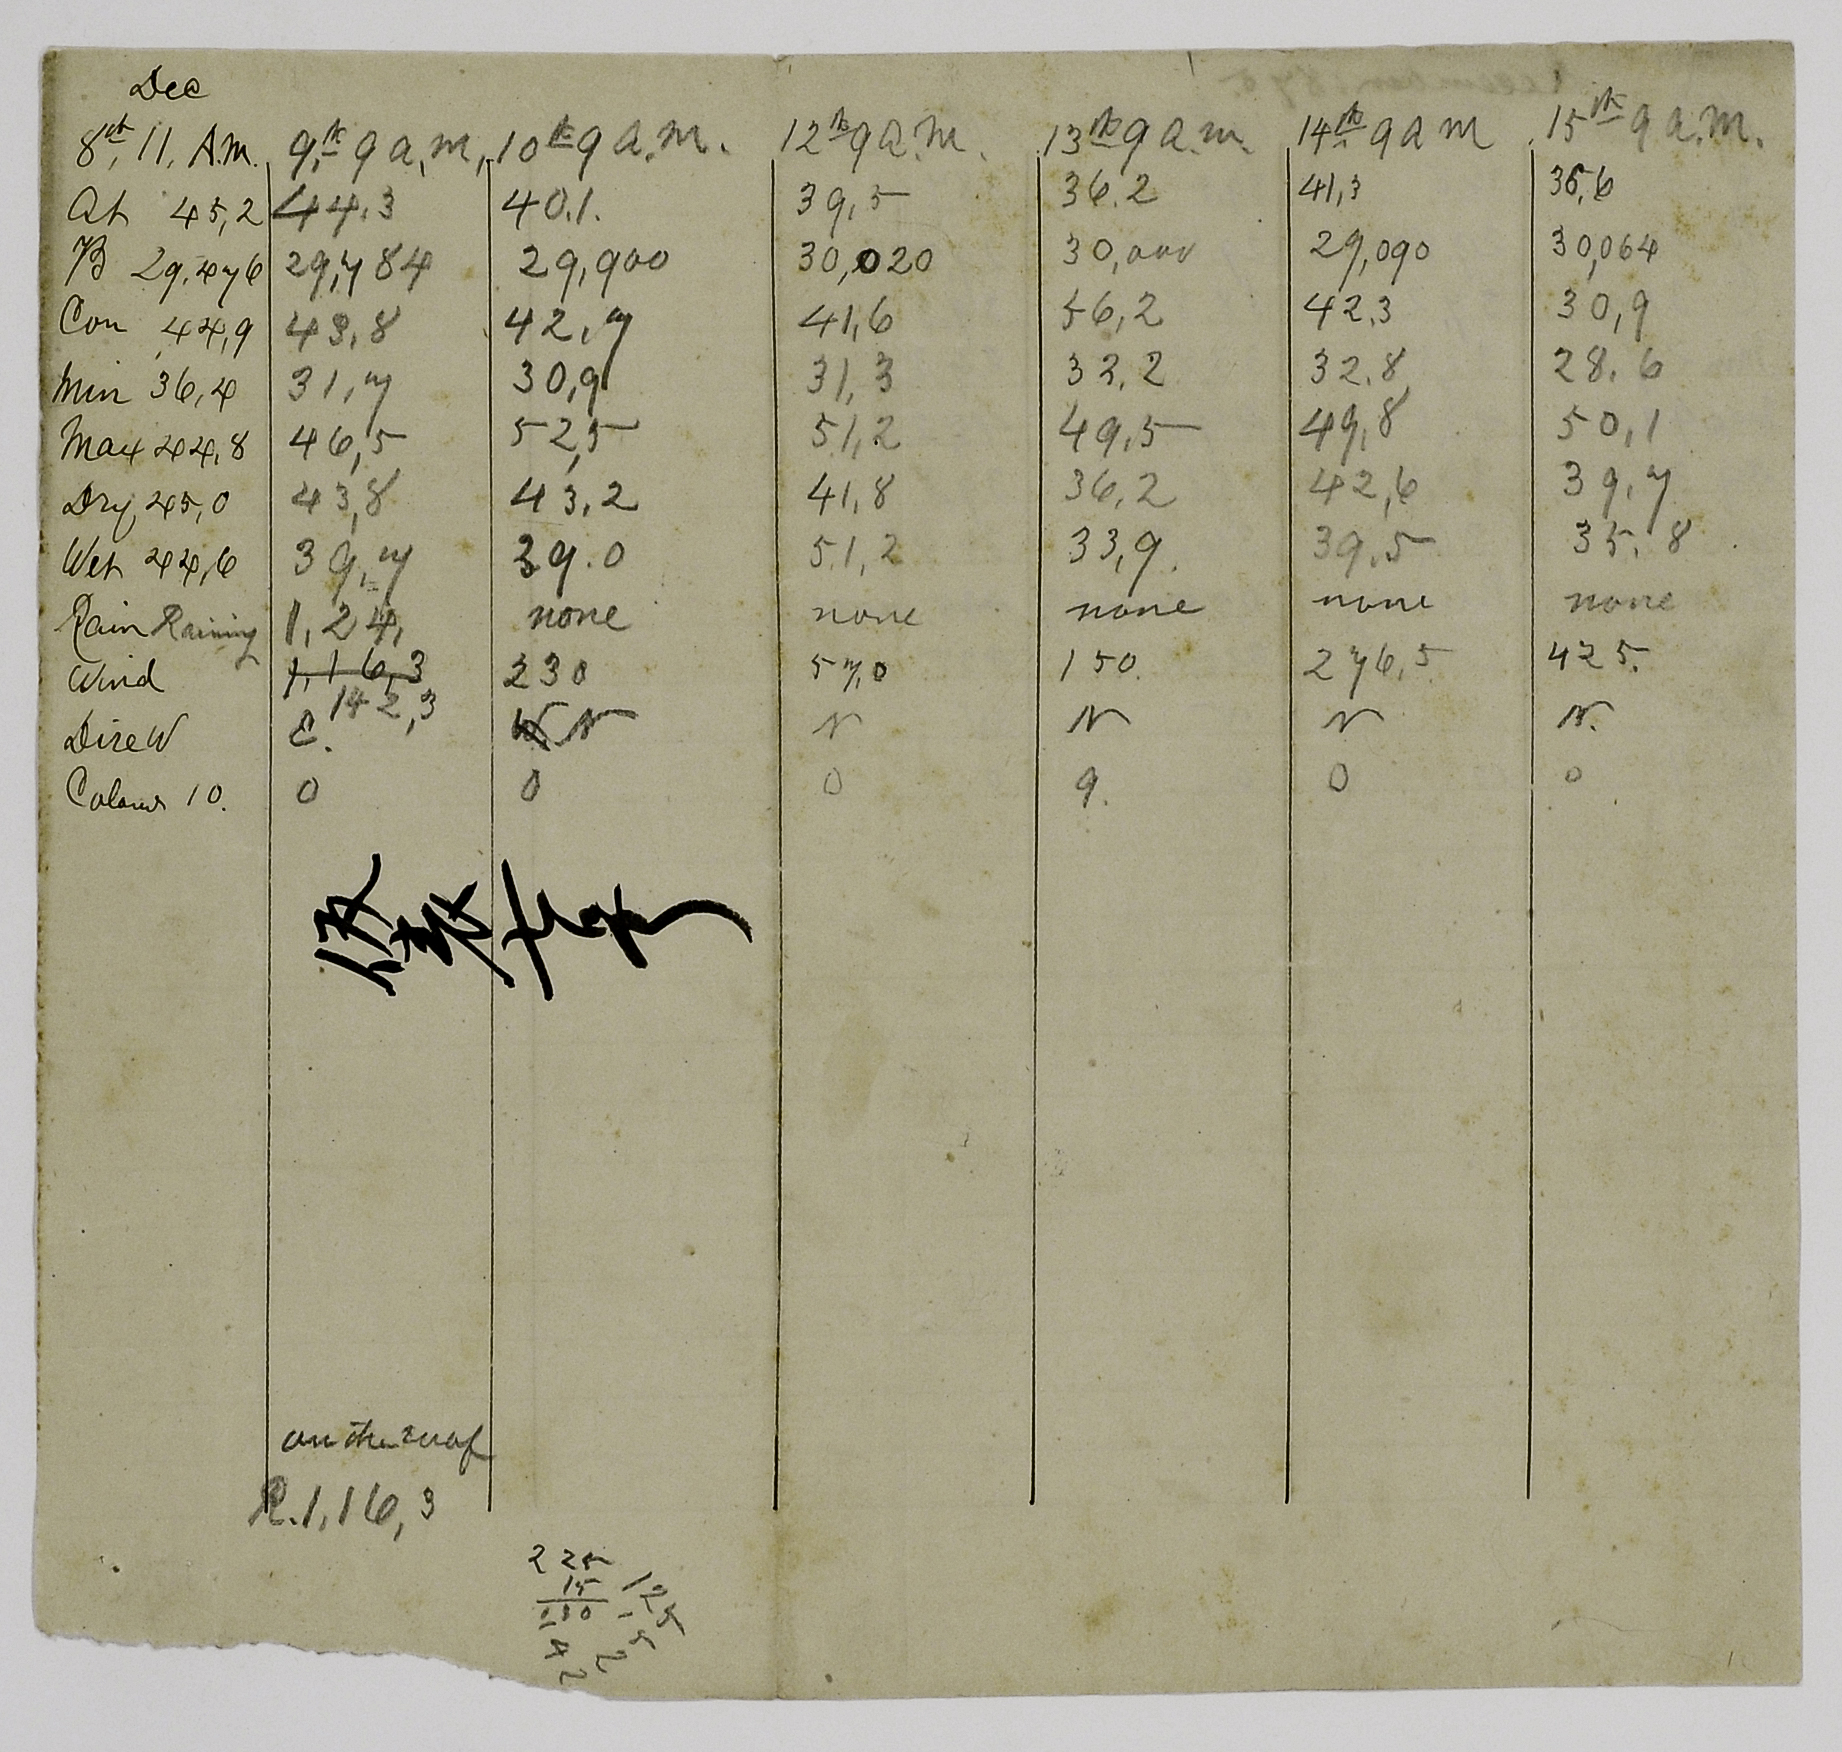 Dec
8th, 11, A.M. 9th 9 a,m, 10th 9 a.m. 12th 9 a.m. 13th 9 a.m. 14th 9 a m 15th 9 a.m.
At 45,2 44,3 40.1. 39,5 36.2 41,3 36,6
B 29,476 29,784 29,900 30,020 30,000 29,090 30,064
Con 44,9 43,8 42,7 41,6 56,2 42.3 30,9
Min 36,4 31,7 30,9 31,3 32,2 32.8 28.6
Max 44,8 46,5 52,5 51,2 49,5 49,8 50,1
Dry 45,0 43,8 43,2 41,8 36,2 42,6 39,7
Wet 44,6 39,7 39.0 51,2 33,9. 39.5 35.8
Rain Raining 1,24, none none none none none
Wind 1,16,3 230 57,0 150. 276,5 425.
142,3
Dire W E. W N N N N N.
10. 0 0 0 9. 0 0
on the roof
R.1,16,3
225
15
125